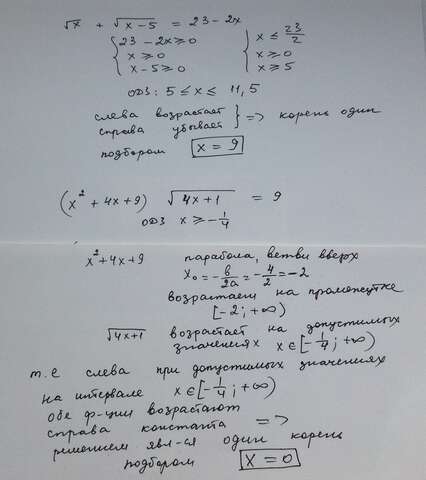 √x + √(x-5) = 23 - 2x
{ 23 - 2x ≥ 0 { x ≤ 23/2
x ≥ 0 x ≥ 0
x - 5 ≥ 0 x ≥ 5
ОДЗ: 5 ≤ x ≤ 11,5
слева возрастает } => корень один
справа убывает
подбором x = 9
(x² + 4x + 9) √(4x+1) = 9
ОДЗ x ≥ -1/4
x² + 4x + 9 парабола, ветви вверх
x₀ = -b/2a = -4/2 = -2
возрастает на промежутке
[-2; +∞)
√(4x+1) возрастает на допустимых
значениях x ∈ [-1/4; +∞)
т.е слева при допустимых значениях
на интервале x ∈ [-1/4; +∞)
обе ф-ции возрастают
справа константа =>
решением явл-ся один корень
подбором x = 0